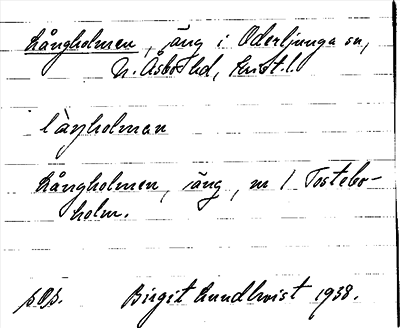 Långholmen, äng i Oderljunga sn,
N. Åsbo hd, Krist. l.
làŋholman
Långholmen, äng, nr 1 Tostebo-
holm.
Birgit Lundkvist 1938.